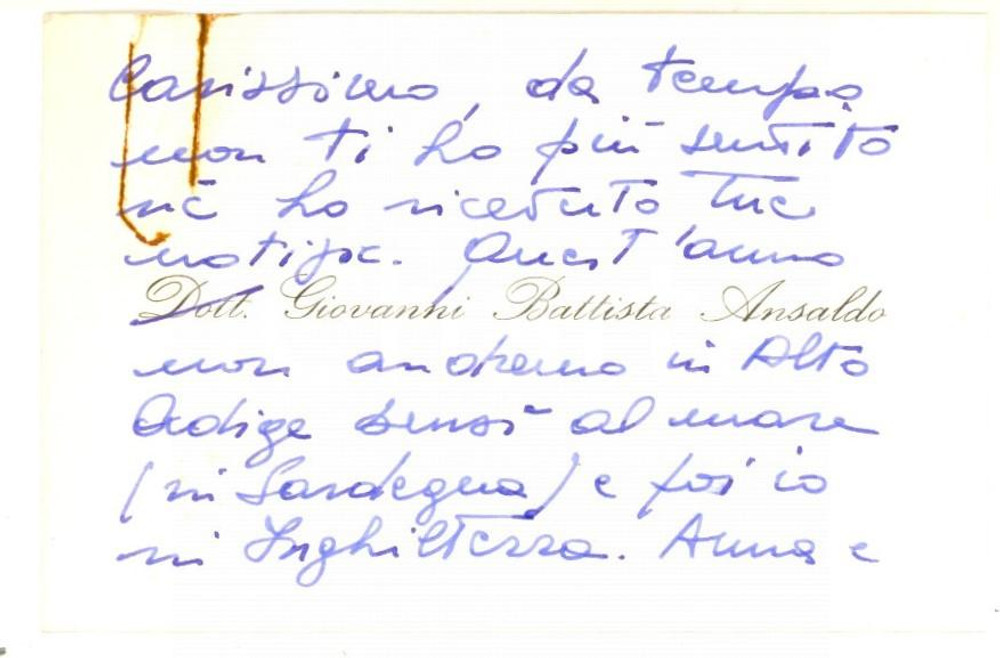 Carissimo, da tempo
non ti ho più sentito
nè ho ricevuto tue
notizie. Quest'anno
Dott. Giovanni Battista Ansaldo
non andremo in Alto
Adige bensì al mare
(in Sardegna) e poi io
in Inghilterra. Anna e